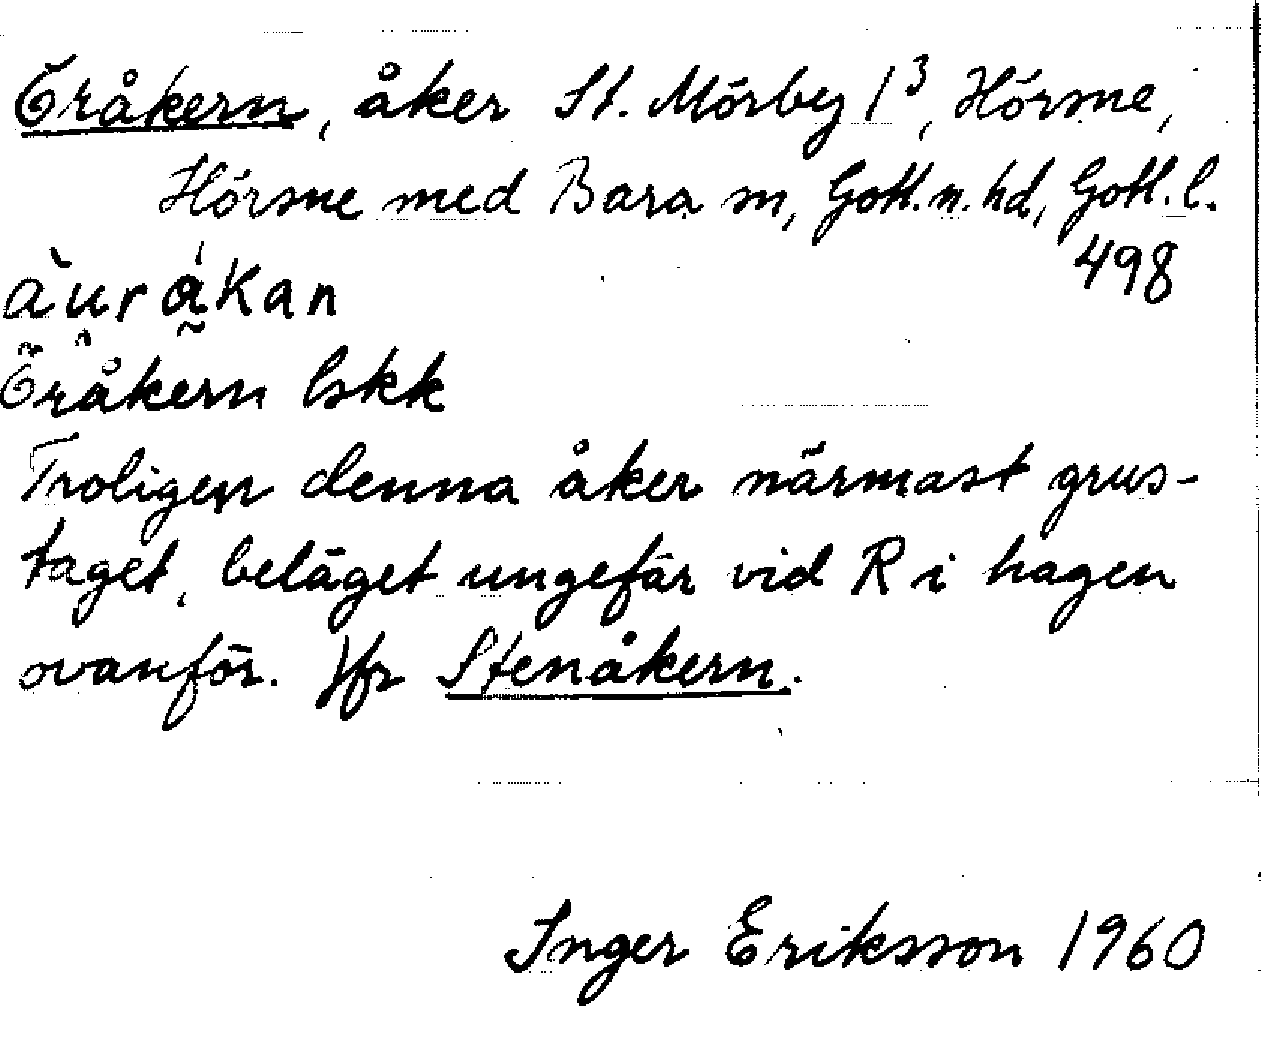 Öråkern, åker St. Mörby 1³, Hörsne,
Hörsne med Bara sn, Gotl. n. hd, Gotl. l.
498
àurákan
Öråkern lskk
Troligen denna åker närmast grus-
taget, beläget ungefär vid R i hagen
ovanför. Jfr Stenåkern.
Inger Eriksson 1960